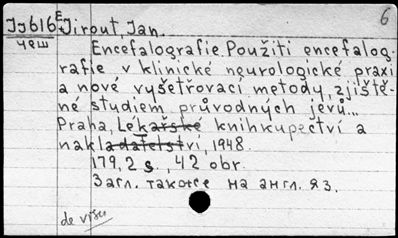 6
Jj616E Jirout, Jan.
чеш
Encefalografie. Použití encefalog-
rafie v klinické neurologické praxi
a nové vyšetřovací metody, zjiště-
né studiem průvodných jevů...
Praha, Lékařské knihkupectví a
nakladatelství, 1948.
179, 2 s., 42 obr.
Загл. также на англ. яз.
de visu